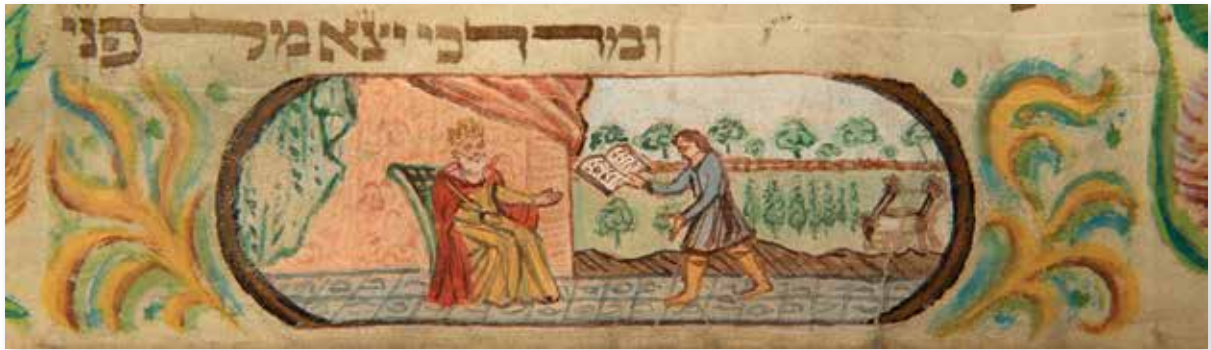 ומרדכי יצא מלפני